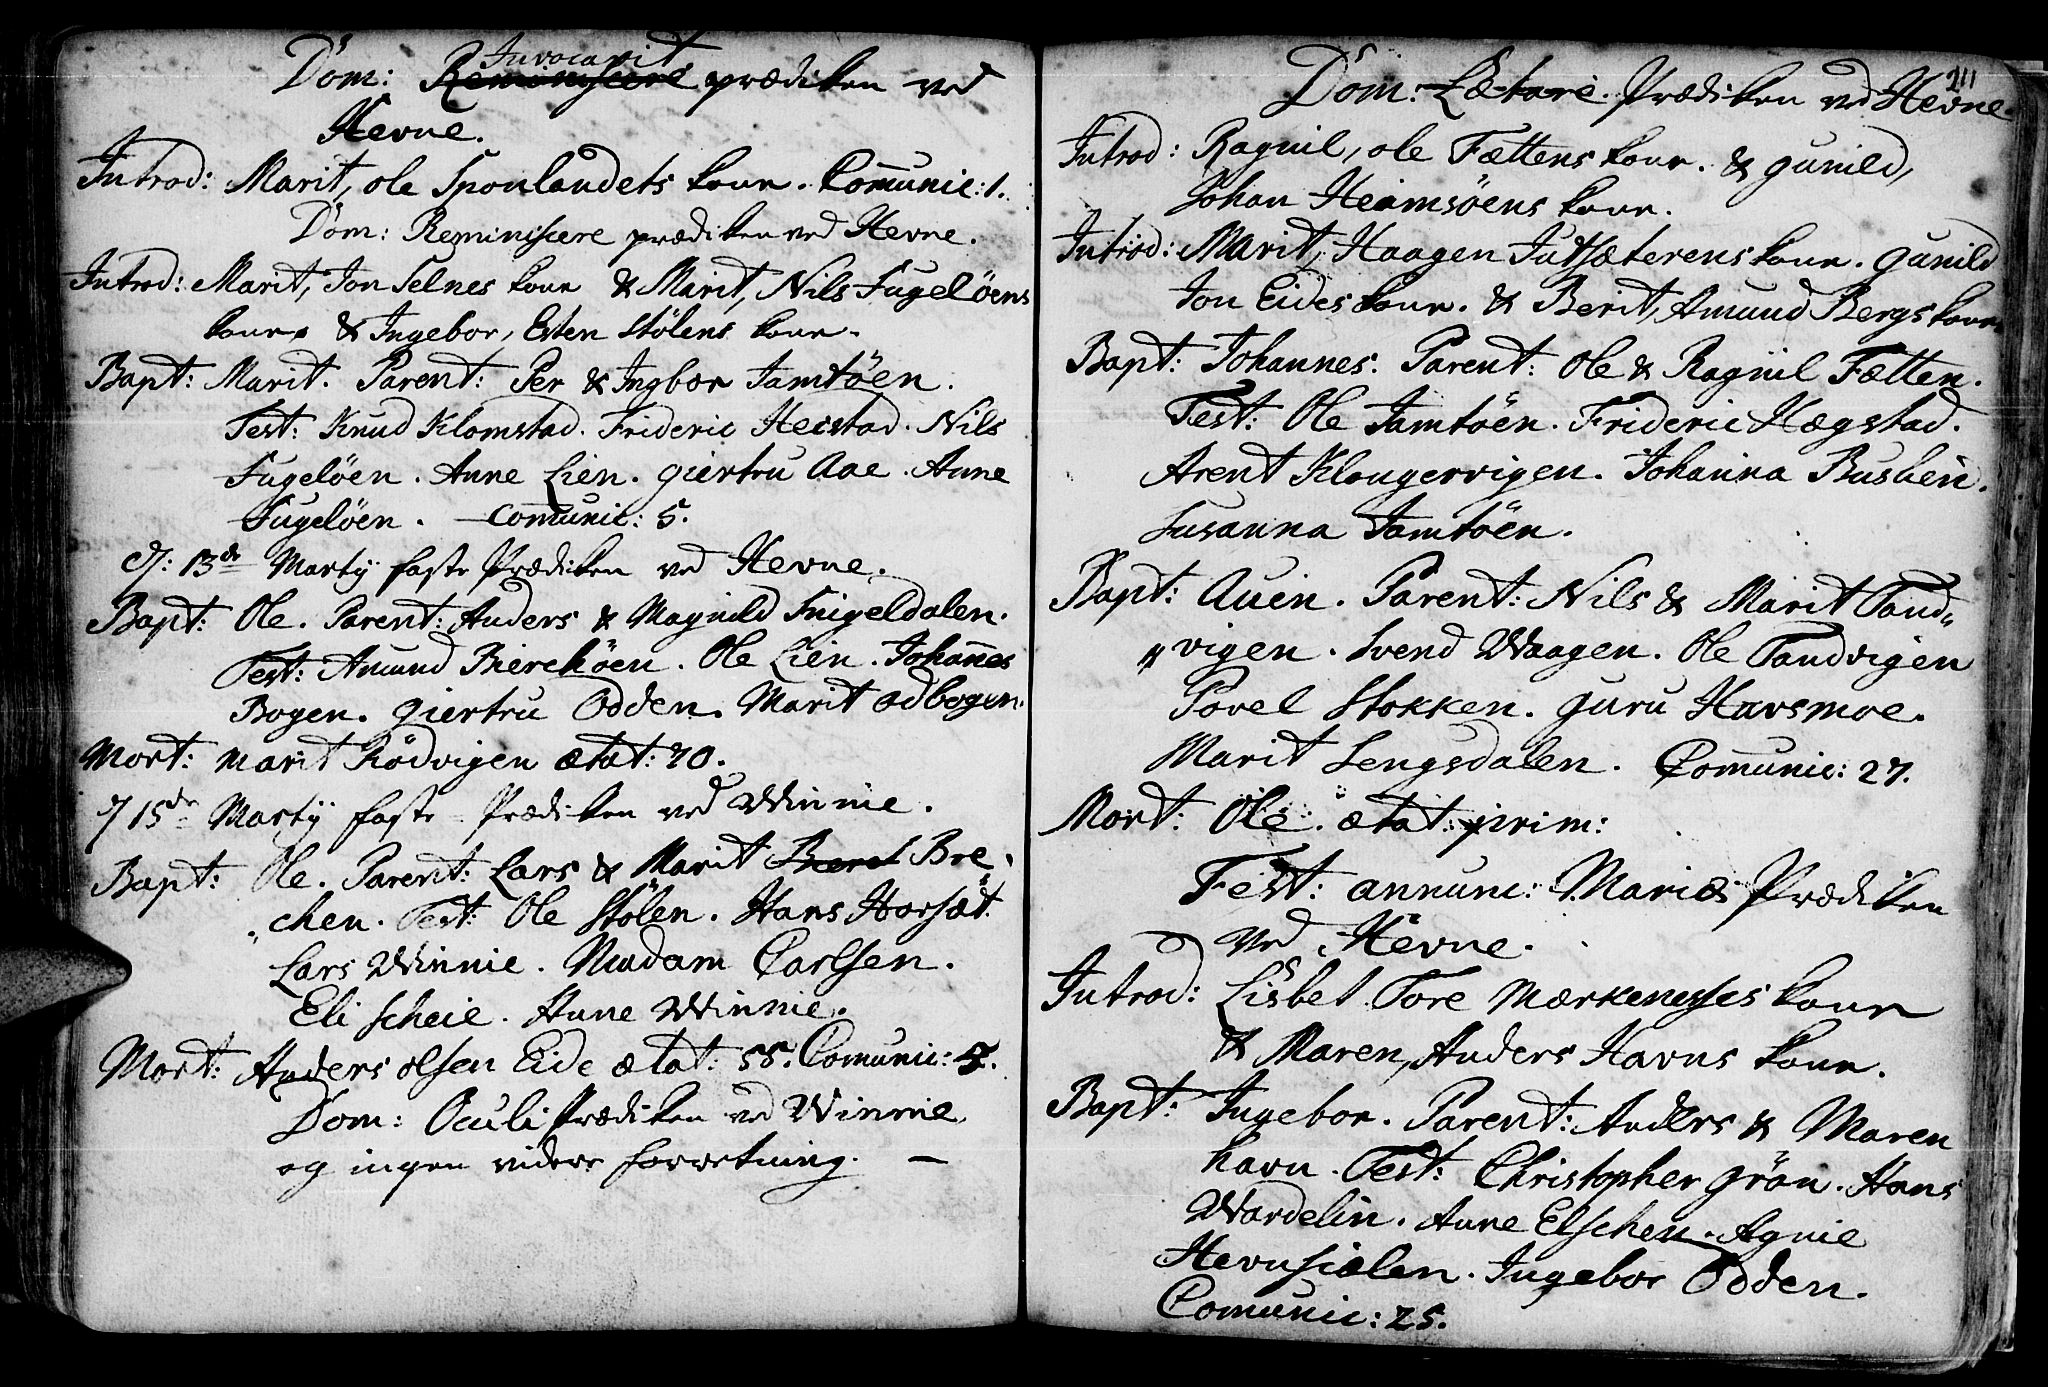 Invocavit
Dom: Reminiscere prædiken ved
Hevne.
Introd: Marit, ole Sponlandets kone. Comunic: 1.
Dom: Reminiscere prædiken ved Hevne.
Introd: Marit, Jon Selnes kone & Marit, Nils Fugelöens
kone & Ingebor, Esten Stölens kone.
Bapt: Marit. Parent: Per & Ingbor Tamtöen.
Test: Knud Klomstad. Frideric Hecstad. Nils
Fugelöen. Anne Lien. giertru Aae. Anne
Fugelöen. Comunic: 5.
d: 13de Marty faste Prædiken ved Hevne.
Bapt: Ole. Parent: Anders & Magnild Snigeldalen.
Test: Amund Bierchöen. Ole Lien. Johannes
Bogen. giertru Odden. Marit odbogen.
Mort: marit Rödvigen ætat: 70.
d 15de Marty faste Prædiken ved Winnie.
Bapt: Ole. Parent: Lars & Marit Beret Bre„
„chen. Test: Ole Stölen. Hans Horsæt.
Lars Winnie. Madam Carlsen.
Eli Scheie. Anne Winnie.
Mort: Anders olsen Eide ætat: 55. Comunic: 5.
Dom: Oculi Prædiken ved Winnie
og ingen videre forretning. —
211
Dom: Lætare. Prædiken ved Hevne
Introd: Ragnil, ole Fættens kone. & gunild,
Johan Heimsöens kone.
Introd: Marit, Haagen Jutsæterens kone. gunild
Jon Eides kone. & Berit, Amund Bergs kone
Bapt: Johannes. Parent: Ole & Ragnil Fætten.
Test: Ole Tamtöen. Frideric Hægstad.
Arent Klongervigen. Johanna Buslien.
Susanna Tamtöen.
Bapt: Auen. Parent: Nils & Marit Tand„
„vigen. Svend Waagen. Ole Tandvigen
Povel Stokken. guru Havsmoe.
Marit Lengsdalen. Comunic: 27.
Mort: Ole. ætat: prim:
Fest: annunc: Mariæ Prædiken
ved Hevne.
Introd: Lisbet Tore Mærkenesses kone
& Maren, Anders Havns kone.
Bapt: Ingebor. Parent: Anders & Maren
havn. Test: Christopher grön. Hans
Wardelin. Anne Elschen. Agnie
Hevnsiælen. Ingebor Odden.
Comunic: 25.